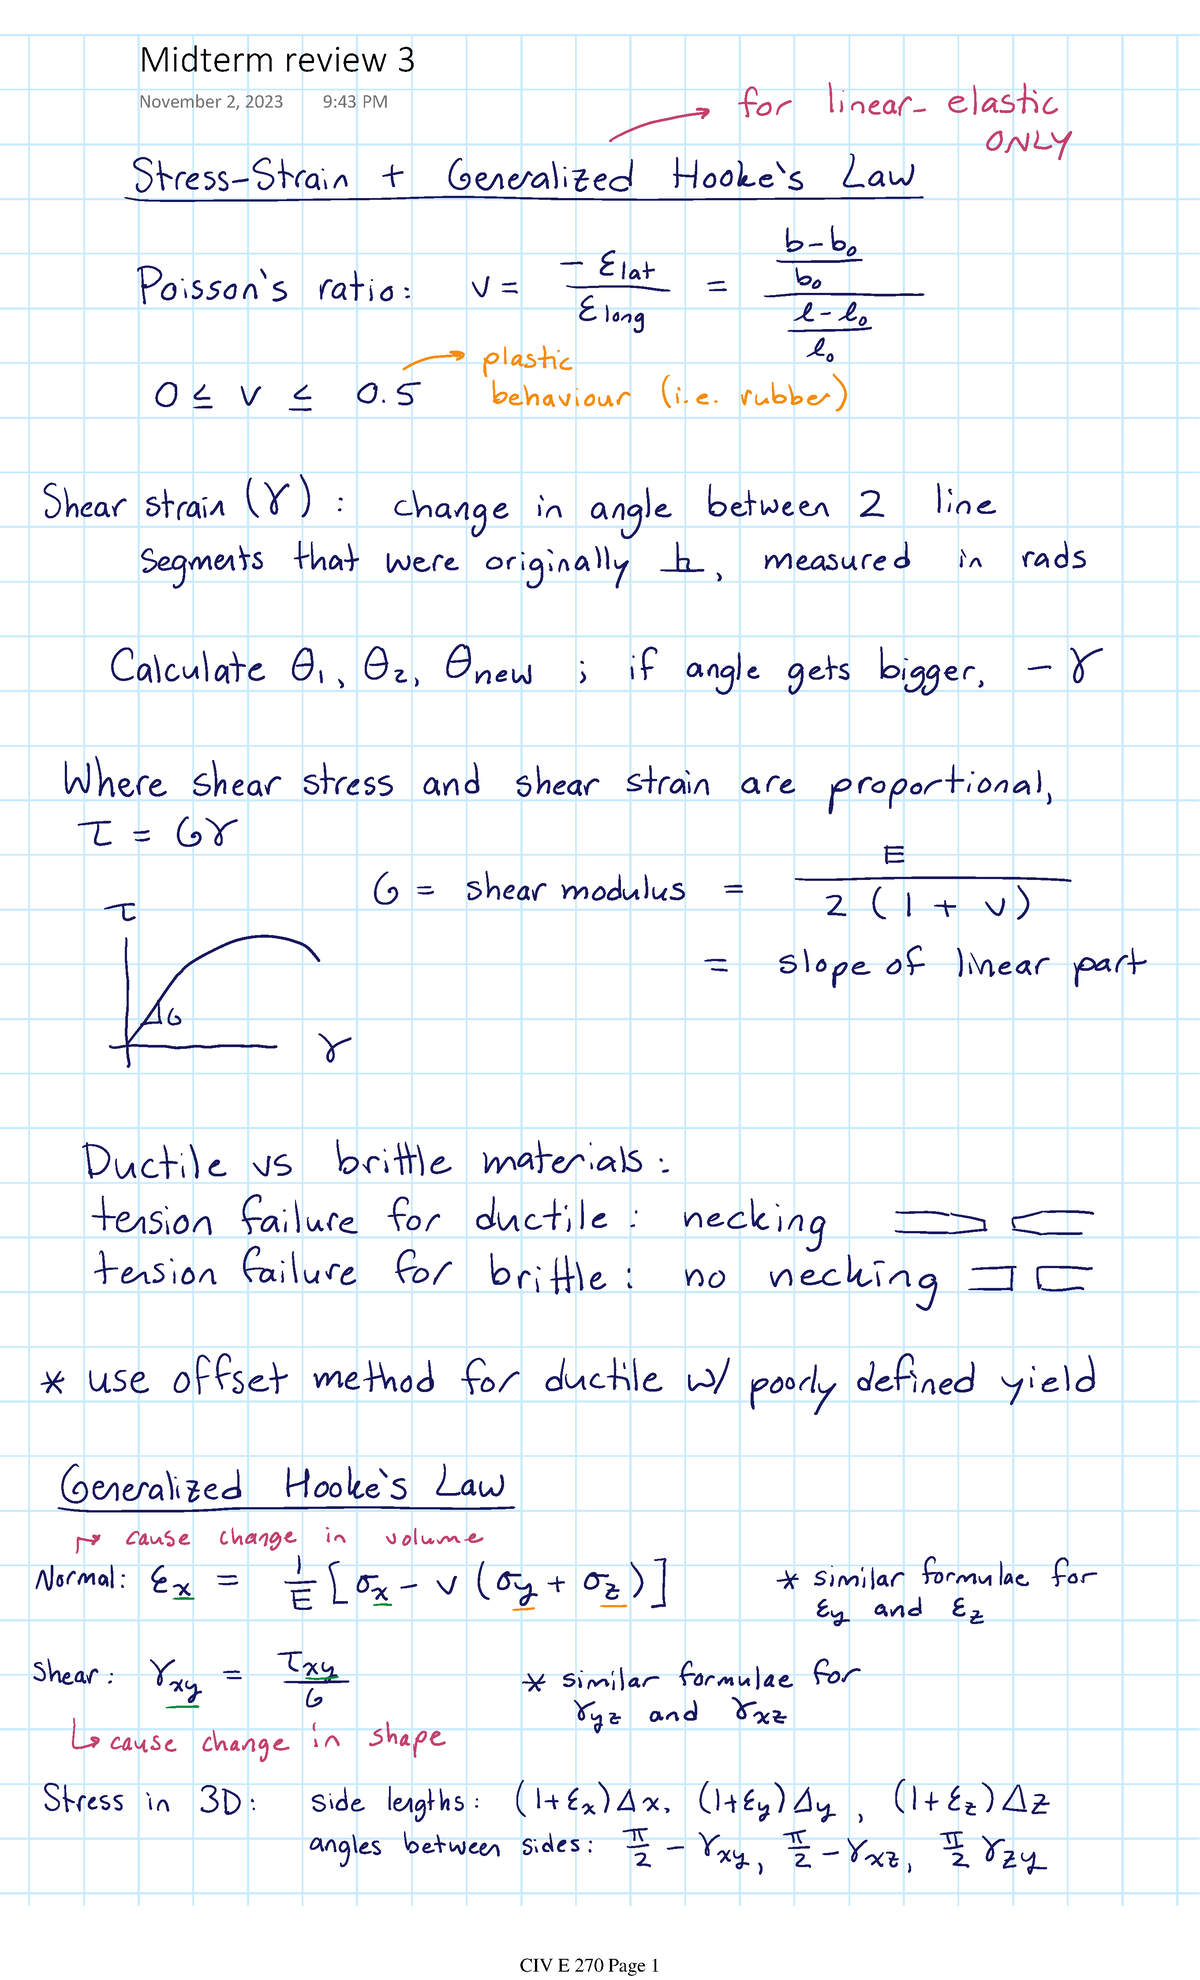 Midterm review 3
November 2, 2023 9:43 PM
for linear-elastic
ONLY
Stress-Strain + Generalized Hooke's Law
Poisson's ratio: ν = -εlat / εlong = ((b-b₀)/b₀) / ((l-l₀)/l₀)
plastic
0 ≤ ν ≤ 0.5 behaviour (i.e. rubber)
Shear strain (γ): change in angle between 2 line
segments that were originally ⊥, measured in rads
Calculate θ₁, θ₂, θnew ; if angle gets bigger, -γ
Where shear stress and shear strain are proportional,
τ = Gγ
G = shear modulus = E / 2(1 + ν)
τ
= slope of linear part
G
γ
Ductile vs brittle materials:
tension failure for ductile: necking
tension failure for brittle: no necking
* use offset method for ductile w/ poorly defined yield
Generalized Hooke's Law
cause change in volume
Normal: εx = 1/E [σx - ν (σy + σz)] * similar formulae for
εy and εz
Shear: γxy = τxy / G * similar formulae for
γyz and γxz
↳ cause change in shape
Stress in 3D: side lengths: (1+εx)Δx, (1+εy)Δy, (1+εz)Δz
angles between sides: π/2 - γxy, π/2 - γxz, π/2 γzy
CIV E 270 Page 1